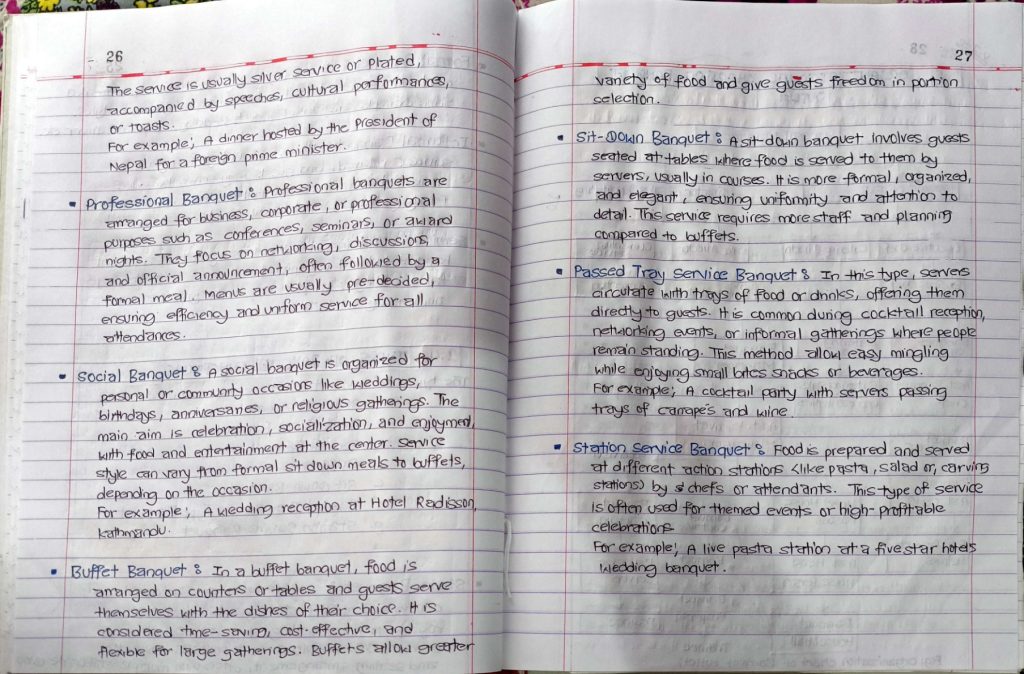 26
The service is usually silver service or plated,
accompanied by speeches, cultural performances,
or toasts.
For example; A dinner hosted by the President of
Nepal for a foreign prime minister.
• Professional Banquet : Professional banquets are
arranged for business, corporate, or professional
purposes such as conferences, seminars, or award
nights. They focus on networking, discussions,
and official announcement, often followed by a
formal meal. Menus are usually pre-decided,
ensuring efficiency and uniform service for all
attendances.
• Social Banquet : A social banquet is organized for
personal or community occasions like weddings,
birthdays, anniversaries, or religious gatherings. The
main aim is celebration, socialization, and enjoyment,
with food and entertainment at the center. Service
style can vary from formal sit down meals to buffets,
depending on the occasion.
For example; A wedding reception at Hotel Radisson,
Kathmandu.
• Buffet Banquet : In a buffet banquet, food is
arranged on counters or tables and guests serve
themselves with the dishes of their choice. It is
considered time-saving, cost-effective, and
flexible for large gatherings. Buffets allow greater
27
variety of food and give guests freedom in portion
selection.
• Sit-Down Banquet : A sit-down banquet involves guests
seated at tables where food is served to them by
servers, usually in courses. It is more formal, organized,
and elegant, ensuring uniformity and attention to
detail. This service requires more staff and planning
compared to buffets.
• Passed Tray Service Banquet : In this type, servers
circulate with trays of food or drinks, offering them
directly to guests. It is common during cocktail reception,
networking events, or informal gatherings where people
remain standing. This method allow easy mingling
while enjoying small bites snacks or beverages.
For example; A cocktail party with servers passing
trays of canape's and wine
• Station Service Banquet : Food is prepared and served
at different action stations (like pasta, salad or, carving
stations) by chefs or attendants. This type of service
is often used for themed events or high-profitable
celebrations
For example; A live pasta station at a five star hotel's
wedding banquet.